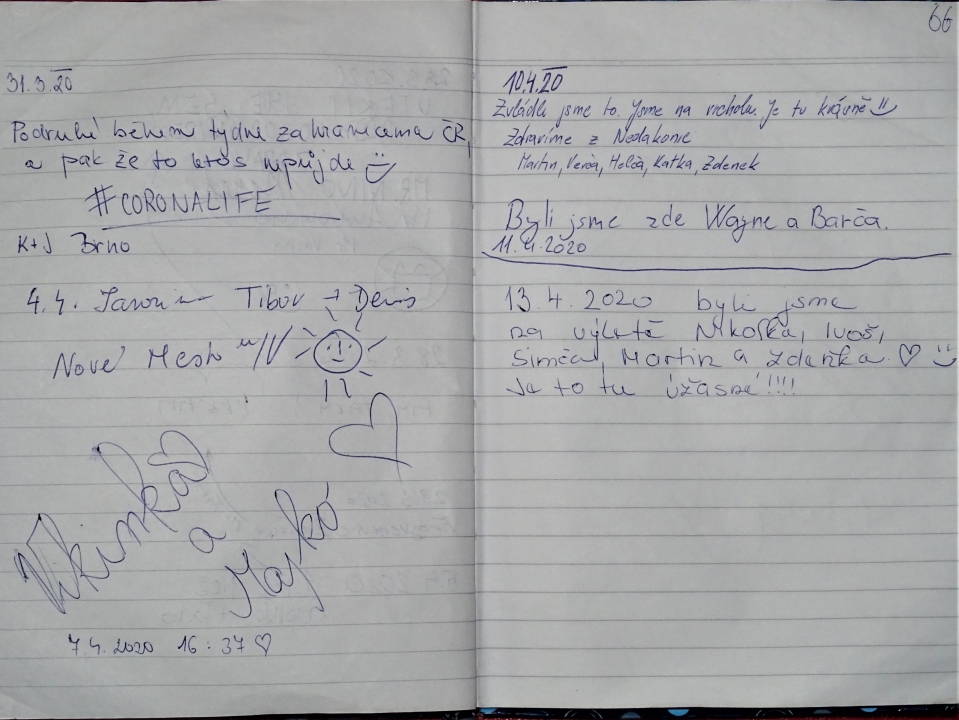 31.3.20
Podruhé během týdne za hranicema ČR,
a pak že to letos nepůjde
#CORONALIFE
K+J Brno
4.4. Tibor + Denis
Nové Mesto n/V
Vikinka
a
Majkó
7.4.2020 16:37
66
10.4.20
Zvládli jsme to. Jsme na vrcholu. Je tu krásně
Zdravíme z Nedakonic
Martin, Verča, Helča, Katka, Zdenek
Byli jsme zde Wayne a Barča.
11.4.2020
13.4.2020 byli jsme
na výletě Nikolka, Ivoš,
Simča, Martin a Zdeňka.
Je to tu úžasné!!!!